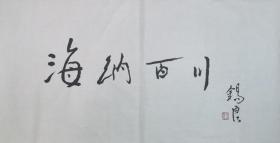 海纳百川
锡良